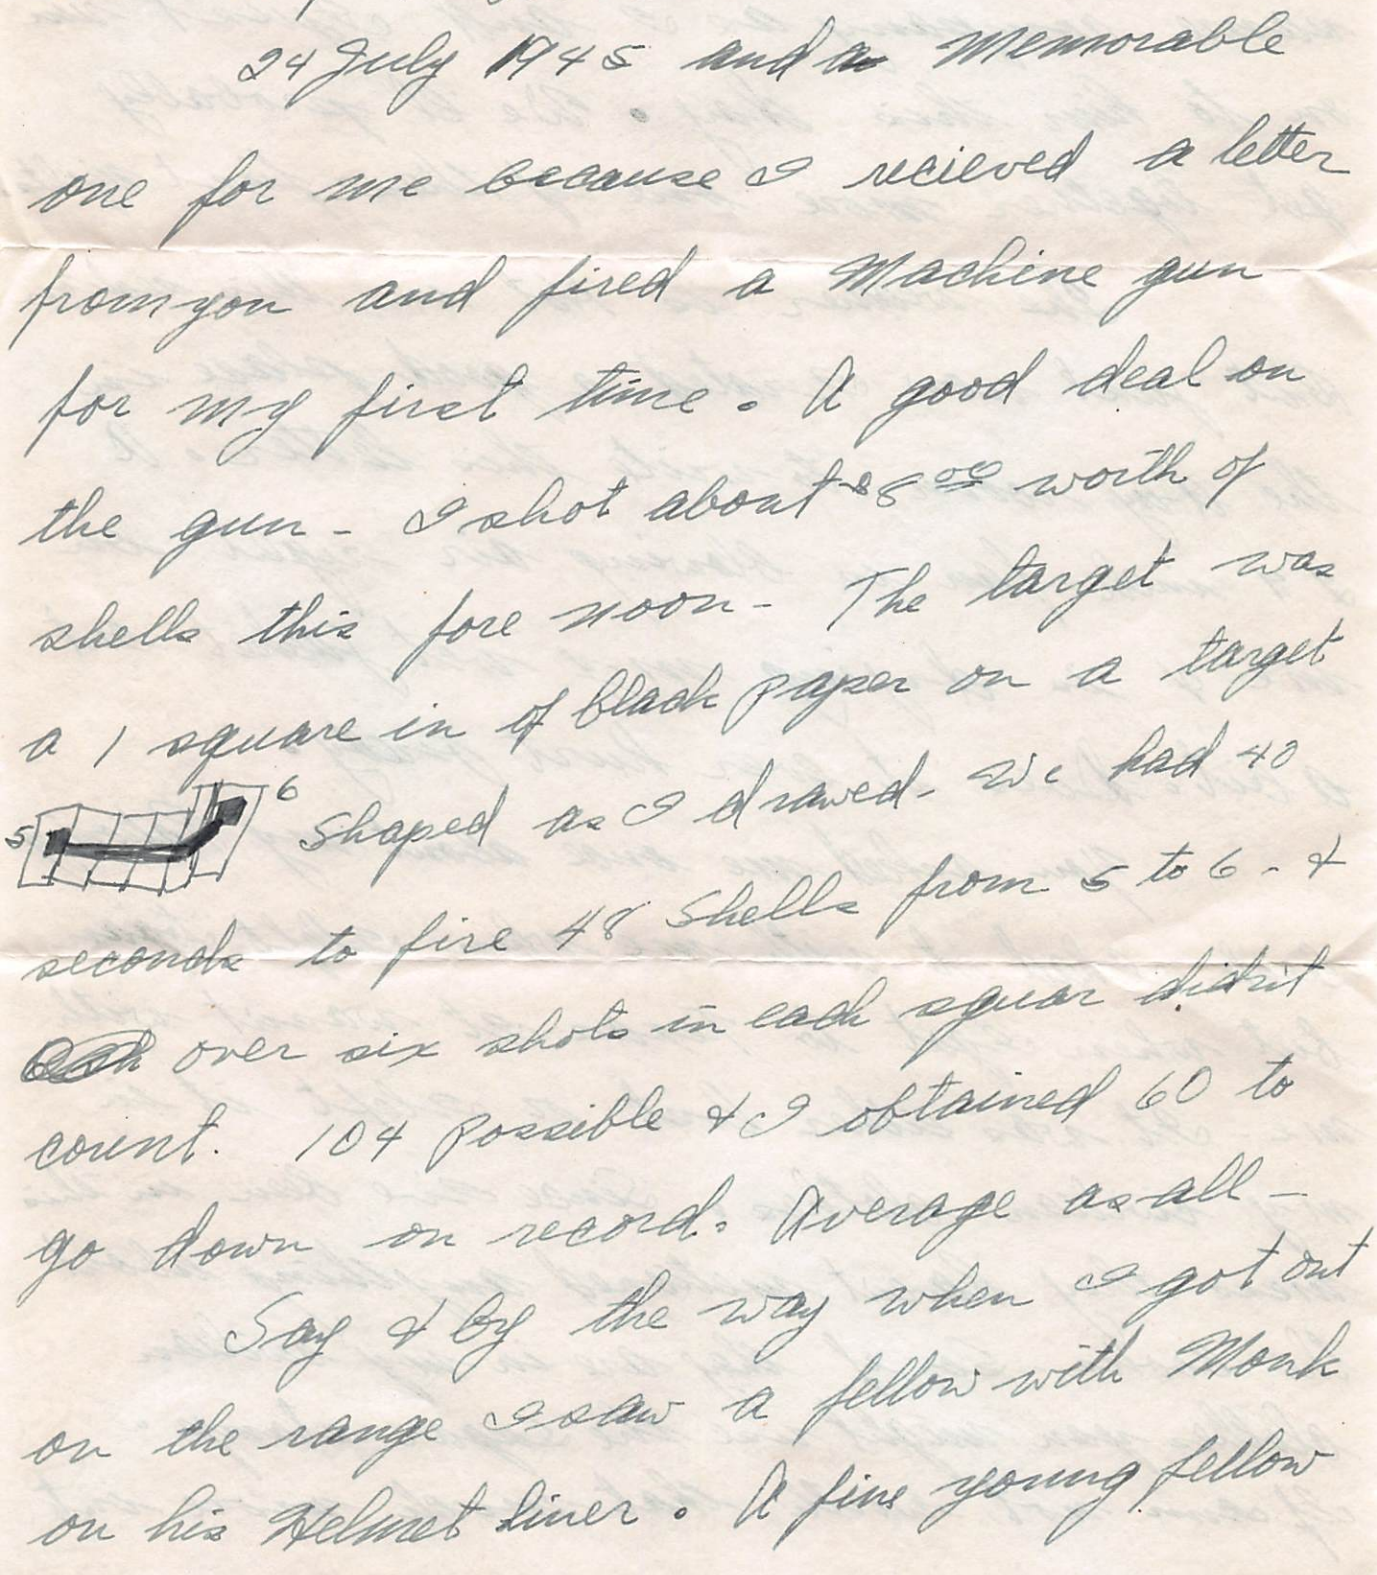 24 July 1945 and a Memorable
one for me because I recieved a letter
from you and fired a Machine gun
for my first time. A good deal on
the gun - I shot about $8.00 worth of
shells this fore noon - The target was
a 1 square in of black paper on a target
5 6 Shaped as I drawed - We had 40
seconds to fire 48 Shells from 5 to 6 - &
over six shots in each squar didn't
count. 104 possible & I obtained 60 to
go down on record. Average as all -
Say & by the way when I got out
on the range I saw a fellow with Monk
on his Helmet liner. A fine young fellow